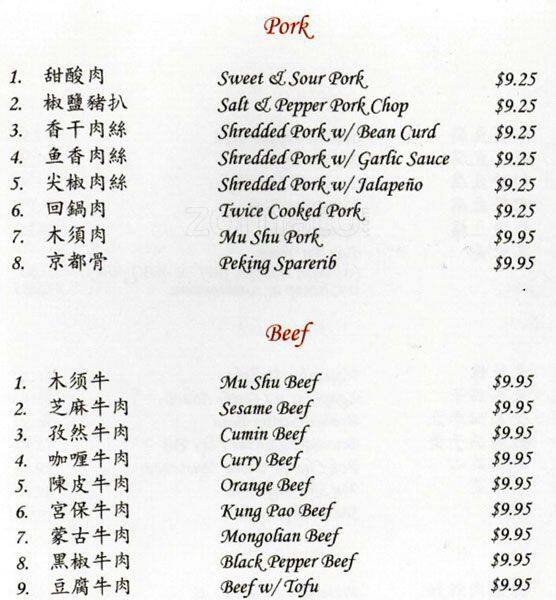 Pork
1. 甜酸肉 Sweet & Sour Pork $9.25
2. 椒鹽豬扒 Salt & Pepper Pork Chop $9.25
3. 香干肉絲 Shredded Pork w/ Bean Curd $9.25
4. 鱼香肉絲 Shredded Pork w/ Garlic Sauce $9.25
5. 尖椒肉絲 Shredded Pork w/ Jalapeño $9.25
6. 回鍋肉 Twice Cooked Pork $9.25
7. 木須肉 Mu Shu Pork $9.95
8. 京都骨 Peking Sparerib $9.95
Beef
1. 木须牛 Mu Shu Beef $9.95
2. 芝麻牛肉 Sesame Beef $9.95
3. 孜然牛肉 Cumin Beef $9.95
4. 咖喱牛肉 Curry Beef $9.95
5. 陳皮牛肉 Orange Beef $9.95
6. 宮保牛肉 Kung Pao Beef $9.95
7. 蒙古牛肉 Mongolian Beef $9.95
8. 黑椒牛肉 Black Pepper Beef $9.95
9. 豆腐牛肉 Beef w/ Tofu $9.95